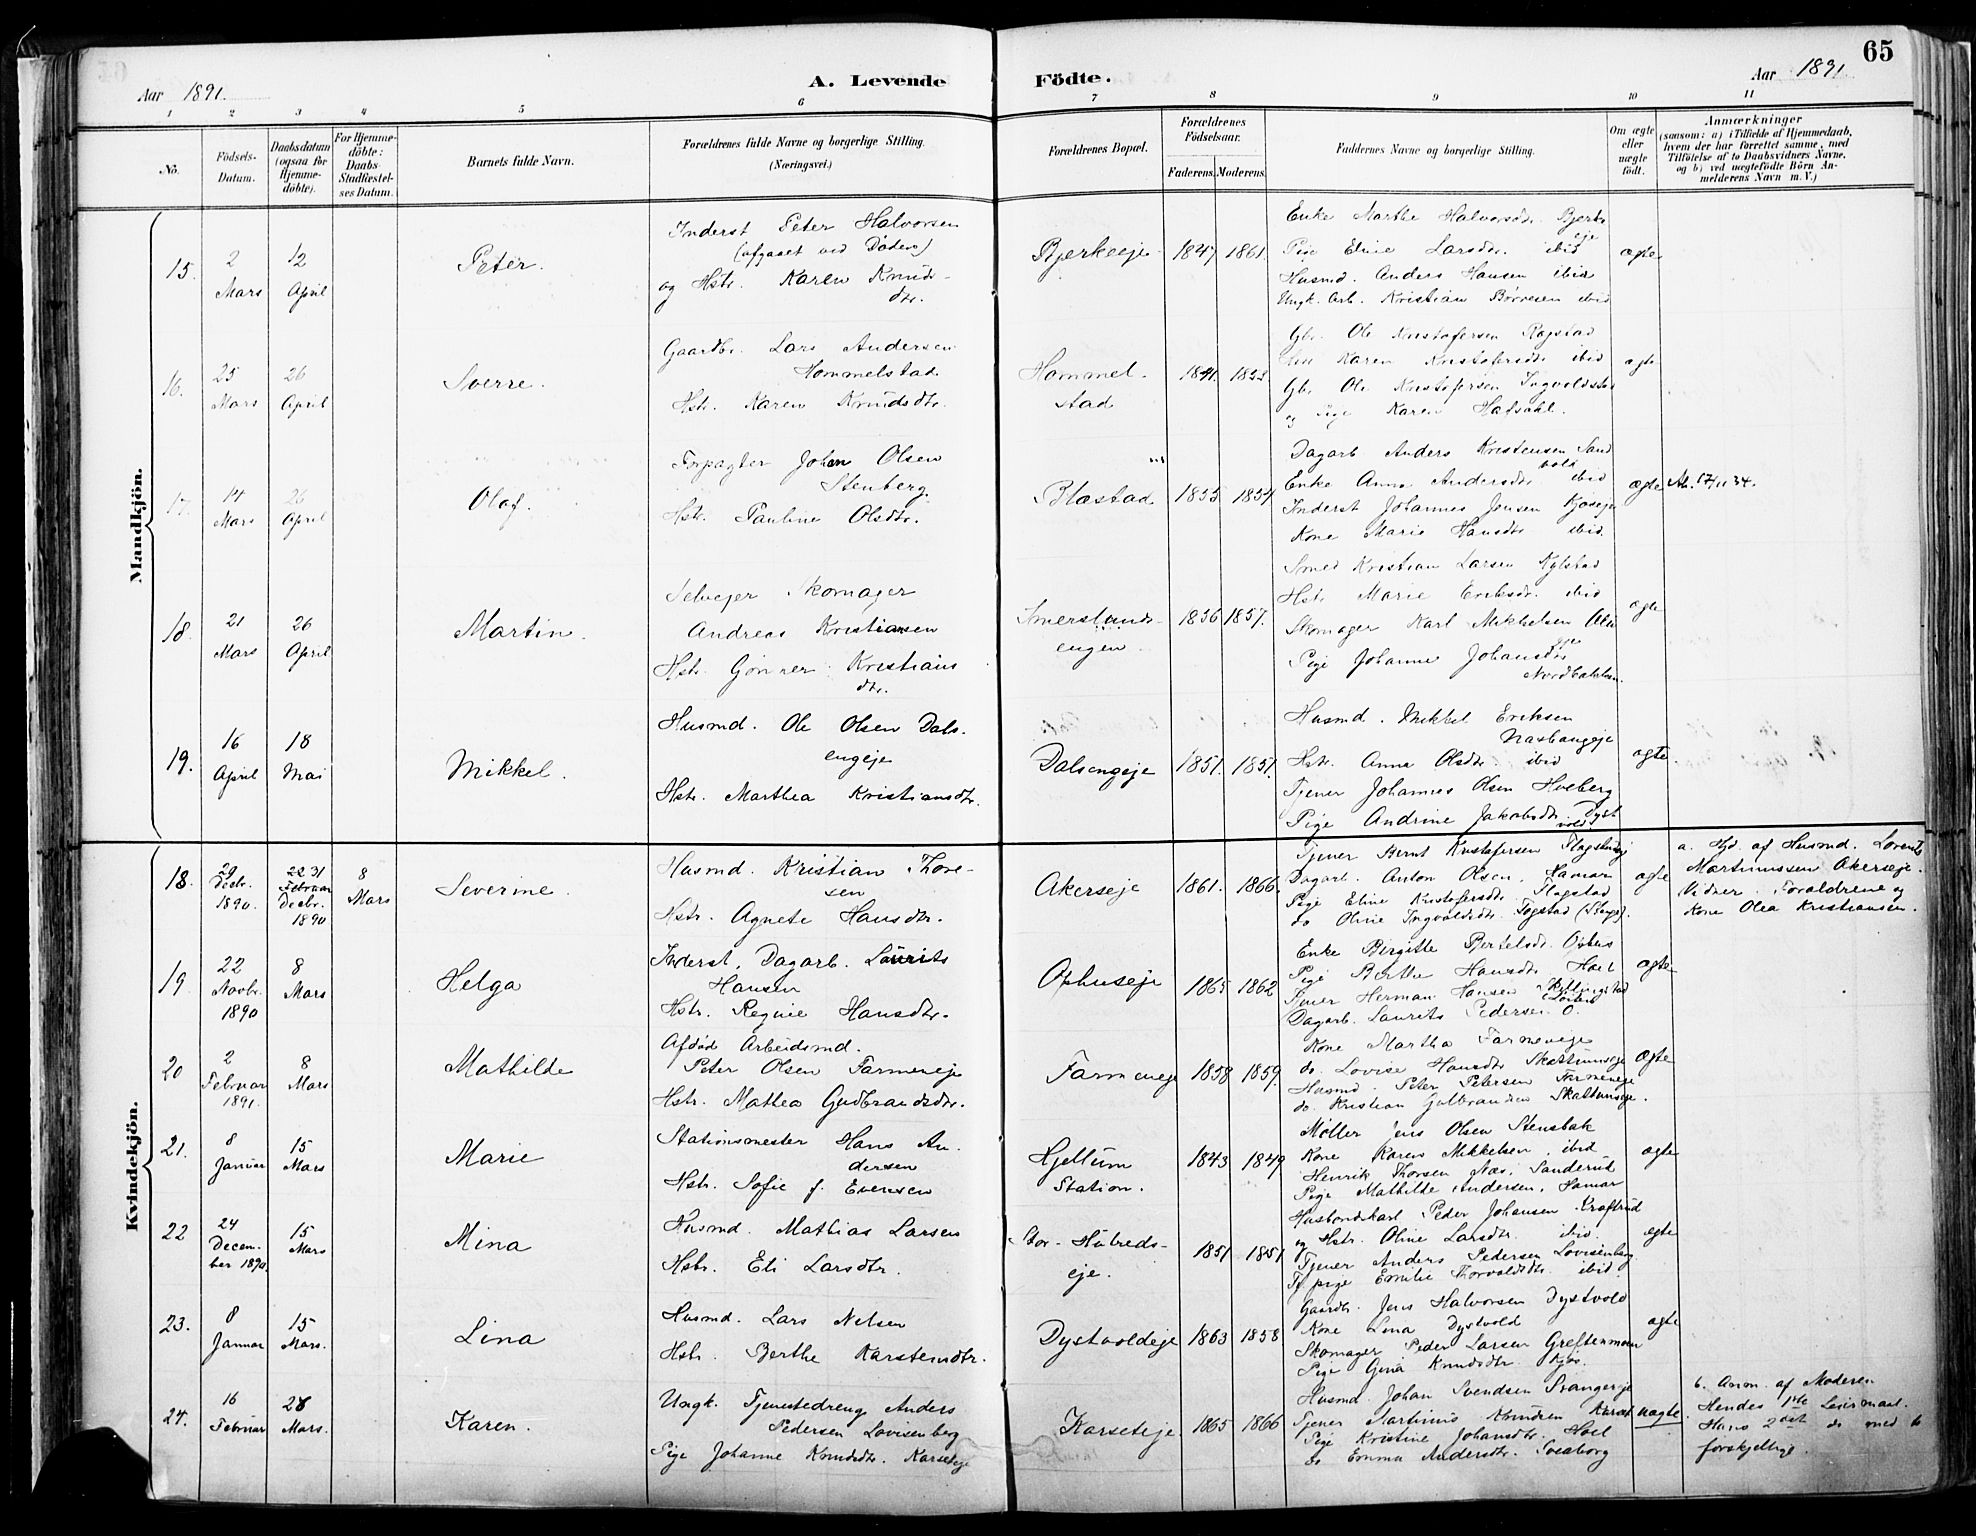 65
Aar 1891.
A. Levende Födte.
Aar 1891
1 2 3 4 5 6 7 8 9 10 11
No.
Födsels-Datum.
Daabsdatum (ogsaa for Hjemme-döbte).
For Hjemme-döbte: Daabs-Stadfæstel-ses Datum.
Barnets fulde Navn.
Forældrenes fulde Navne og borgerlige Stilling.
(Næringsvei.)
Forældrenes Bopæl.
Forældrenes Födselsaar.
Faderens. Moderens.
Faddernes Navne og borgerlige Stilling.
Om ægte eller uægte födt.
Anmærkninger
(saasom: a) i Tilfælde af Hjemmedaab,
hvem der har forrettet samme, med
Tilföielse af to Daabsvidners Navne,
og b) ved uægtefödte Börn An-
melderens Navn m. V.)
Mandkjön.
15. 2 Mars 12 April
Peter.
Inderst Peter Halvorsen
(afgaaet ved Døden)
og Hstr. Karen Knuds-
dtr.
Bjerkeeje 1847 1861
Enke Marthe Halvorsdtr. Bjerke
eje
Pige Eline Larsdtr. ibid
Husmd. Anders Hansen ibid
Ungk. Arb. Kristian Børresen ibid
ægte
16. 25 Mars 26 April
Sverre.
Gaardbr. Lars Andersen
Hommelstad.
Hstr. Karen Knudsdtr.
Hommel-
stad
1841.
Gbr. Ole Kristofersen Rogstad
Karen Kristofersdtr ibid
Gbr. Ole Kristofersen Ingvoldstad
og Pige Karen Hafsahl.
ægte
17. 14 Mars 26 April
Olaf.
Forpagter Johan Olsen
Stenberg.
Hstr. Pauline Olsdtr.
Blæstad 1855 1854
Dagarb Anders Kristensen Sand
vold
Enke Anna Andersdtr ibid
Inderst Johannes Jensen Kjoseje
Kone Marie Hansdtr ibid.
ægte
18. 21 Mars 26 April
Martin.
Selvejer Skomager
Andreas Kristiansen
Hstr. Gunner Kristians
dtr.
Imerslunds-
engen.
1836 1857.
Smed Kristian Larsen Kylstad
Hstr Marie Eriksdr. ibid
Skomager Karl Mikkelsen
Pige Johanne Johansdtr
ægte
19. 16 April 18 Mai
Mikkel.
Husmd. Ole Olsen Dals-
engeje
Hstr. Marthea Kristiansdtr.
Dalsengeje 1851. 1851.
Husmd. Mikkel Eriksen
Hstr. Anna Olsdtr ibid
Tjener Johannes Olsen Hveberg
Pige Andrine Jakobsdtr Dyst
vold.
ægte.
Kvindekjön.
18. 29 Decbr. 1890. 22 31 Februar Decbr. 1890 8 Mars
Severine.
Husmd. Kristian Thore-
sen
Hstr. Agnete Hansdtr.
Akerseje 1861. 1866.
Tjener Bernt Kristofersen Flagstad
Dagarb. Anton Olsen, Hamar
Pige Eline Kristofersdtr Flagstad
do Oline Ingvoldsdtr. Togstad (Stange).
ægte
a. Hjd. af Husmd. Lorents
Martinussen Akerseje.
Vidner. Forældrene og
Kone Olea Kristiansen.
19. 22 Novbr. 1890 8 Mars
Helga
Inderst, Dagarb. Laurits
Hansen
Hstr. Regine Hansdtr.
Ophuseje 1865 1862
Enke Birgitte Bertelsdr. Ophus
Pige Berthe Hansdtr Hoel
Tjener Herman Hansen
Dagarb. Laurits Pedersen O.
ægte
20 2 Februar 1891. 8 Mars
Mathilde
Afdød Arbeidsmd.
Peter Olsen Farmeneje
Hstr. Mathea Gudbrandsdtr.
Farmeneje 1858 1859.
Kone Martha Farmeneje
do. Lovise Hansdtr Skattumseje
Husmd. Peter Petersen Farmeneje
do. Kristian Gulbrandsen Skattumseje.
ægte
21. 8 Januar 15 Mars
Marie
Stationsmester Hans An-
dersen
Hstr. Sofie f. Evensen
Hjellum
Station.
1843 1849
Møller Jens Olsen Stensbak
Kone Karen Mikkelsen, ibid
Henrik Thorsen Næs, Sanderud
Pige Mathilde Andersen, Hamar
ægte
22 24 Decem-ber 1890. 15 Mars
Mina
Husmd. Mathias Larsen
Hstr. Eli Larsdtr.
Stor-Hubreds-
eje.
1851 1851
Husbondskarl Peder Johansen Kraftrud
og Hstr. Oline Larsdtr. ibid.
Tjener Anders Pedersen Lovisenberg
Tj pige Emilie Thorvaldsdtr. ibid.
ægte
23. 8 Januar 15 Mars.
Lina
Husmd. Lars Nilsen
Hstr. Berthe Karstensdtr.
Dystvoldeje 1863 1858
Gaardbr. Jens Halvorsen Dystvold
Kone Lina Dystvold
Skomager Peder Larsen Greftenmoen
Pige Gina Knudsdtr Kjos.
ægte
24. 16 Februar 28 Mars.
Karen.
Ungk. Tjenestedreng Anders
Pedersen Lovisenberg
Pige Johanne Knudsdtr. Karseteje
Karseteje 1865 1866
Husmd Johan Svendsen Stangeeje
Tjener Martinus Knudsen Karset
Pige Kristine Johansdtr. Hoel
do Emma Andersdtr. Sveaborg
uægte
b. Anm. af Moderen
Hendes 1ste Leiermaal.
Hans 2det do med to
forskjellige.